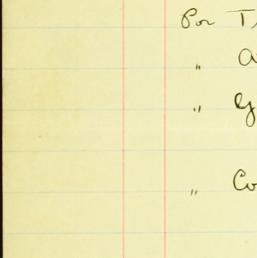 Por T
" a
" G
" Co